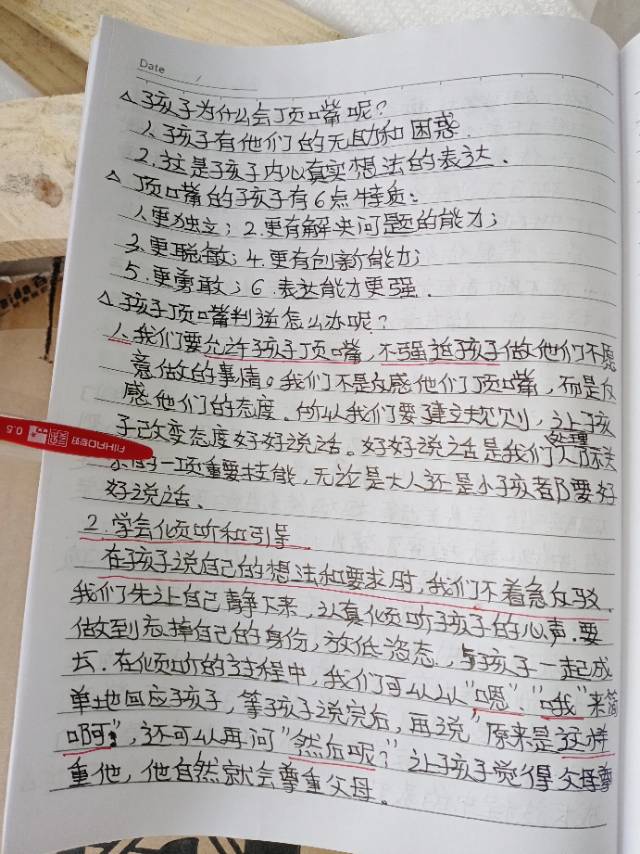 Date /
△孩子为什么会顶嘴呢?
1.孩子有他们的无助和困惑.
2.这是孩子内心真实想法的表达.
△顶嘴的孩子有6点特质:
1.更独立;2.更有解决问题的能力;
3.更聪敏;4.更有创新能力;
5.更勇敢;6.表达能力更强.
△孩子顶嘴判逆怎么办呢?
1.我们要允许孩子顶嘴,不强迫孩子做他们不愿
意做的事情。我们不是反感他们顶嘴,而是反
感他们的态度.所以我们要建立规则,让孩
子改变态度好好说话。好好说话是我们处理人际关
的一项重要技能,无论是大人还是小孩都要好
好说话.
2.学会倾听和引导
在孩子说自己的想法和要求时,我们不着急反驳.
我们先让自己静下来,认真倾听孩子的心声.要
做到忘掉自己的身份,放低姿态,与孩子一起成
长.在倾听的过程中,我们可以以"嗯"、"哦"来简
单地回应孩子,等孩子说完后,再说"原来是这样
啊",还可以再问"然后呢?"让孩子觉得父母尊
重他,他自然就会尊重父母。
AIHAO 爱好 0.5